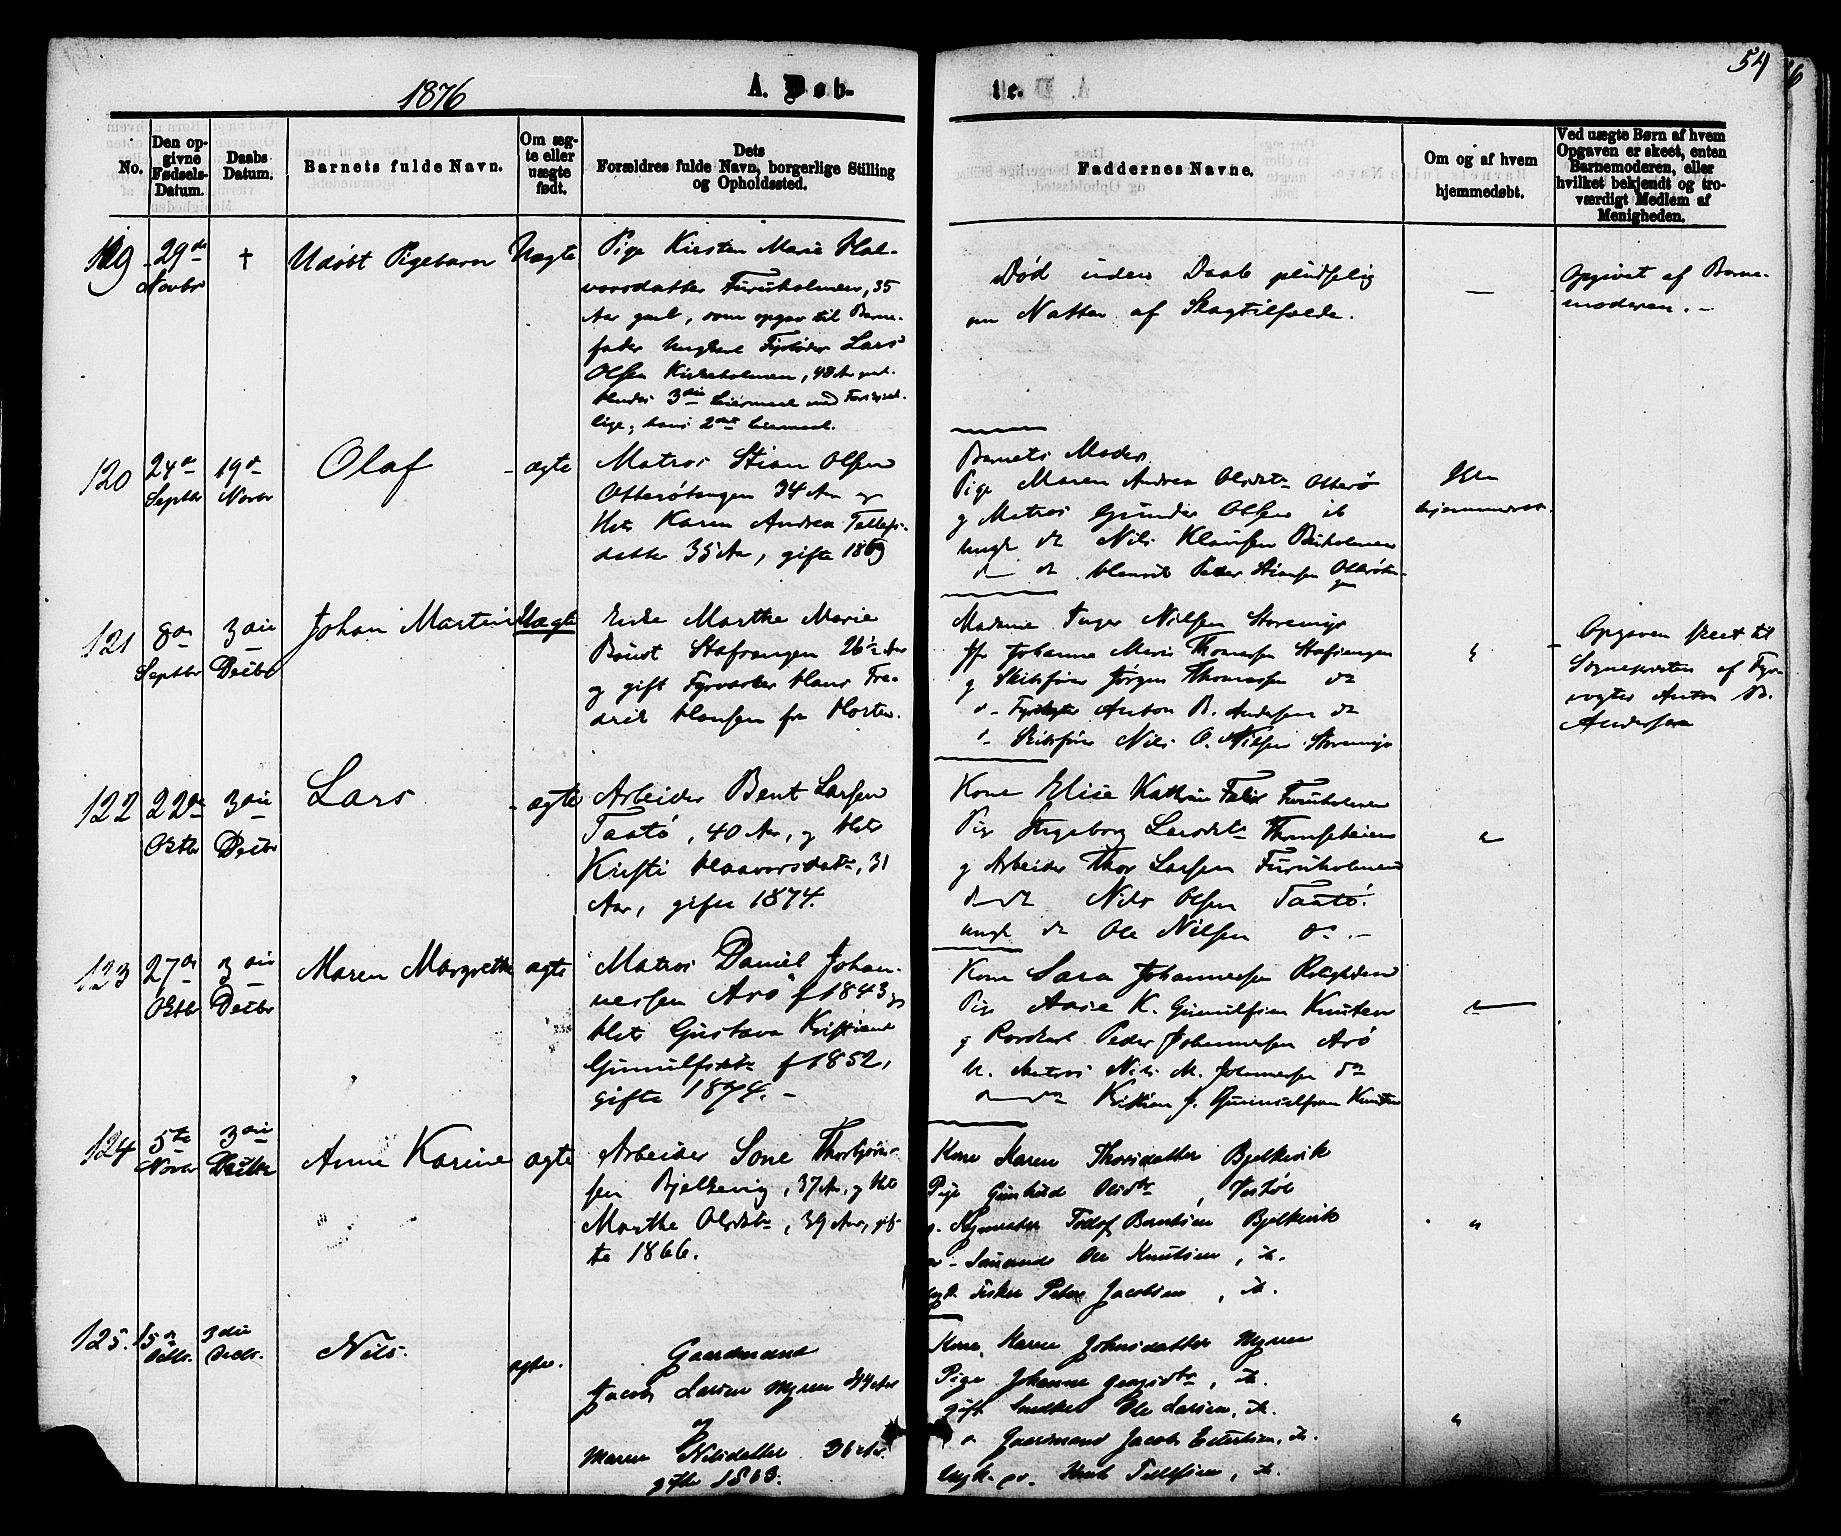 54
1876
A. Døb-
te.
No.
Den op-
givne
Fødsels-
Datum.
Daabs
Datum.
Barnets fulde Navn.
Om æg-
te eller
uægte
født.
Dets
Forældres fulde Navn, borgerlige Stilling
og Opholdssted.
Faddernes Navne.
Om og af hvem
hjemmedøbt.
Ved uægte Børn af hvem
Opgaven er skeet, enten
Barnemoderen, eller
hvilket bekjendt og tro-
værdigt Medlem af
Menigheden.
119
29de
Novbr
†
Udøbt Pigebarn
Uægte
Pige Kirsten Marie Hal-
vorsdatter Furuholmen, 35
Aar gml, som opgav til Barne-
fader Lars
Olsen Kirkeholmen, 48 Ar gml.
Hendes 3die Leiermaal med
hans 2det Leiermaal.
Død uden Daab pludselig
om Natten af Slagtilfælde.
—
Opgivet af Barne-
moderen. -
120
24de
Septbr
19de
Novbr
Olaf
ægte
Matros Stian Olsen
Otterøtangen 34 Ar og
Hst Karen Andrea Tellefs-
datter 35 Ar, gifte 1869
Barnets Moder
Pige Maren Andrea Olsdtr Otterø
og Matros Gunder Olsen ib
ungk do Nils Klausen
do do Henrik Peder Stiansen Otterøtan-
gen
Ikke
hjemmedøbt.
121
8de
Septbr
3die
Decbr
Johan Martin
Uægte
Enke Marthe Marie
Stafsengen 26½ Aar
og gift Fyrvogter Hans Fre-
drik Hansen fra Horten.
Madame Inger Nilsen
Johanne Marie Thomessen Stafsengen
og Skibsfører Jørgen Thomessen do
do Fyrvogter Anton B. Andersen do
do Skibsfører Nils O. Nilsen
"
Opgaven skeet til
Sognepresten af Fyr-
vogter Anton B.
Andersen
122
22de
Oktbr
3die
Decbr
Lars
ægte
Arbeider Bent Larsen
Taatø, 40 Ar, og Hst
Kristi Haavorsdatr, 31
Aar, gifte 1874.
Kone Elise Kathrine Furuholmen
Pige Ingeborg Larsdtr
og Arbeider Thor Larsen Furuholmen
do do Nils Olsen Taatø.
ungk do Ole Nilsen do. -
"
123
27de
Oktbr
3die
Decbr
Maren Margrethe
ægte
Matros Daniel Johan-
nessen Arø f 1843 og
Hst Gustava Kristiane
Gunulfsdtr f 1852,
gifte 1874. -
Kone Sara Johannessen
Pige Anne K. Gunulfsen Knuten
og Peder Johannessen Arø
U. Matros Nils M. Johannessen do
do do Kristian J. Gunnulfsen Knuten
"
124
5te
Novbr
3die
Decbr
Anne Karine
ægte
Arbeider Sone Thorbjørn-
sen Bjelkevig, 37 Ar, og Hst
Marthe Olsdtr, 39 Aar, gif-
te 1866.
Kone Karen Thorsdatter Bjelkevik
Pige Gunhild Olsdtr,
g. Tellof Berntsen Bjelkevik
Ole Knutsen, ib.
ugk. Fisker Peter Jacobsen, ib.
"
125.
15de
Octbr.
3die
Decbr.
Nils.
ægte.
Gaardmand
Jacob Larsen Myren 44 Ar
og
Maren Nilsdatter 36 Ar.
gifte 1863.
Kone Karen Johnsdatter Myren
Pige Johanne , ib.
gift Snedker Ole Larsen, ib.
o Gaardmand Jacob , ib.
Ungk. Knut Tellefsen, ib.
"